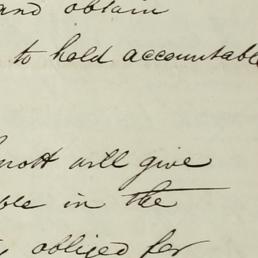 and obtain
to hold accountable
will give
in the
obliged for